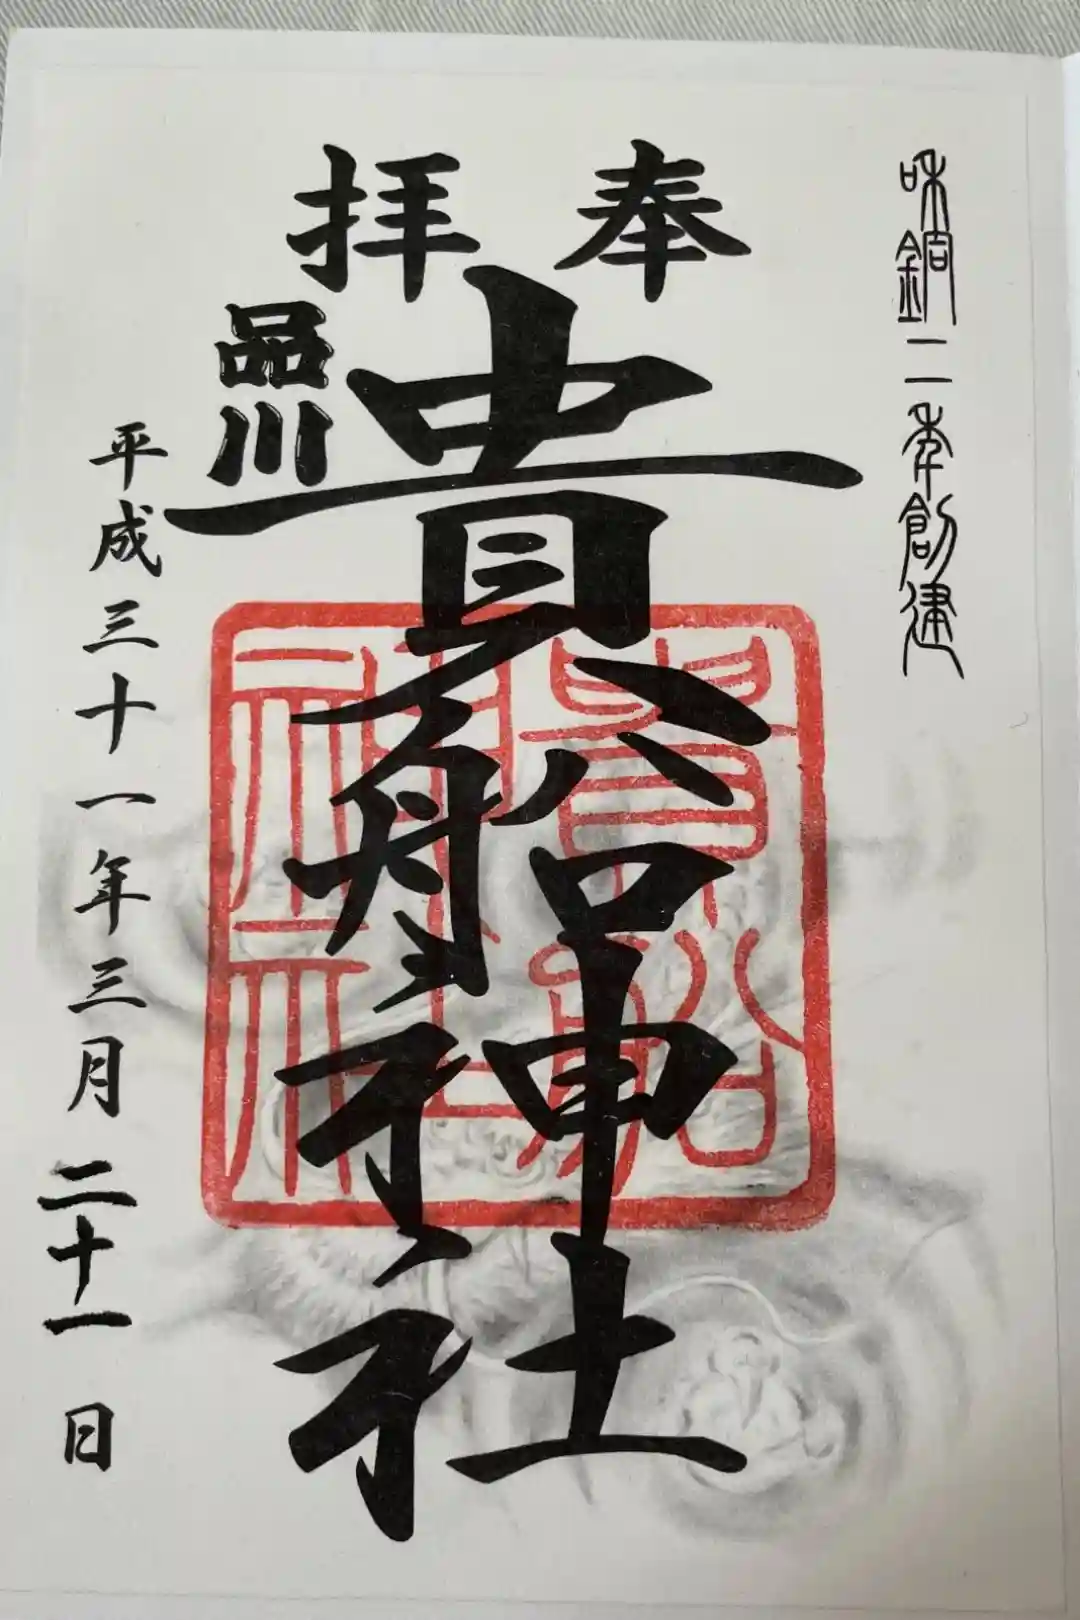 和銅二年創建
奉拝
品川
貴船神社
貴船
神社
平成三十一年三月二十一日